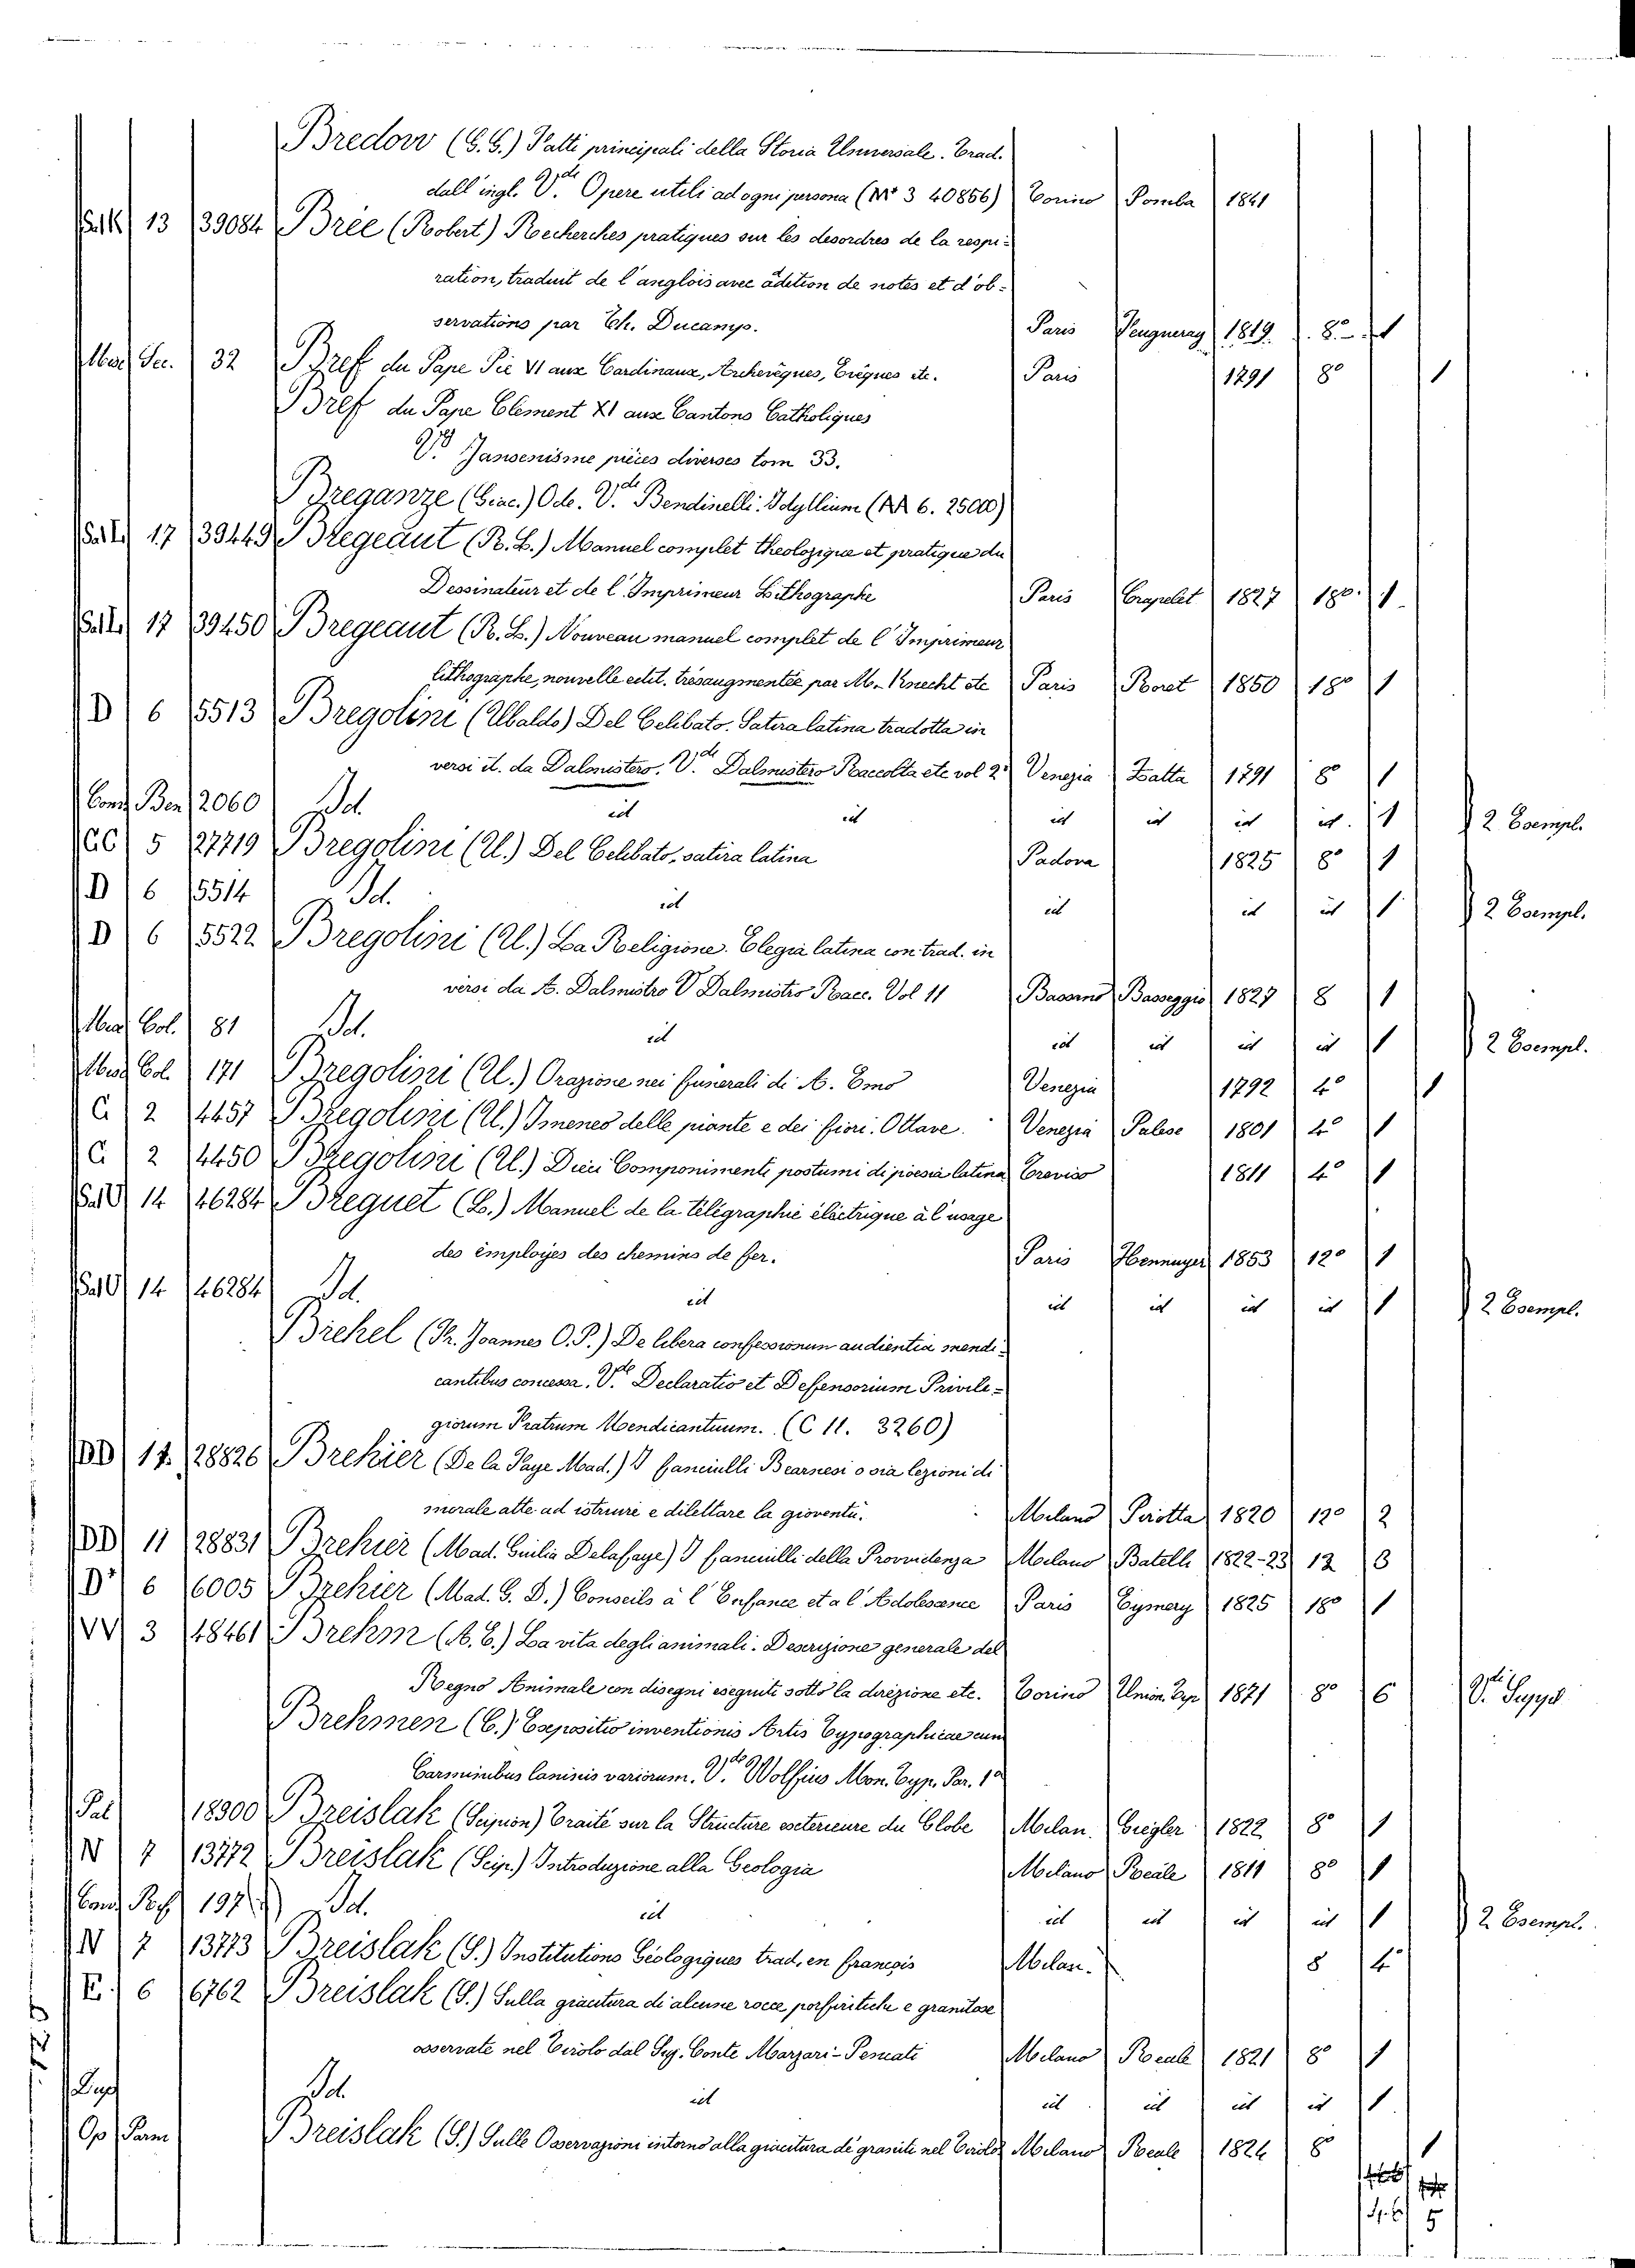 Bredow (G. G.) Fatti principali della Storia Universale. Trad.
dall'ingl. V.de Opere utili ad ogni persona (M 3 40856) Torino Pomba 1841
Sal K 13 39084 Brée (Robert) Recherches pratiques sur les desordres de la respi=
ration, traduit de l'anglois avec adition de notes et d'ob=
servations par Ch. Ducamp. Paris 1819. 8.° 1
32 Bref du Pape Pie VI aux Cardinaux, Archevêques, Evêques etc. Paris 1791 8° 1
Bref du Pape Clement XI aux Cantons Catholiques
V.de Jansenisme pièces diverses tom 33.
Breganze (Giac.) Ode. V.de Bendinelli. Idyllium (AR 6. 2500)
Sal L 17 39449 Bregeaut (R. L.) Manuel complet theologique et pratique du
Dessinateur et de l'Imprimeur Lithographe Paris Crapelet 1827 18°. 1
Sal L 17 39450 Bregeaut (R. L.) Nouveau manuel complet de l'Imprimeur
lithographe, nouvelle edit. tresaugmentée par M. Knecht etc Paris Roret 1850 18° 1
D 6 5513 Bregolini (Ubaldo) Del Celibato. Satira latina tradotta in
versi it. da Dalmistero. V.de Dalmistero Raccolta etc vol 2° Venezia Zatta 1791 8° 1
Cons Ben 2060 Id. id id id id id id. 1 2 Esempl.
CC 5 27719 Bregolini (U.) Del Celibato, satira latina Padova 1825 8° 1
D 6 5514 Id. id id id id 1 2 Esempl.
D 6 5522 Bregolini (U.) La Religione. Elegia latina con trad. in
versi da A. Dalmistro V Dalmistro Racc. Vol 11 Bassano Basseggio 1827 8 1
Misc Col. 81 Id. id id id id id 1 2 Esempl.
Misc Col. 171 Bregolini (U.) Orazione nei funerali di A. Emo Venezia 1792 4° 1
C 2 4457 Bregolini (U.) Imeneo delle piante e dei fiori. Ottave. Venezia Palese 1801 4° 1
C 2 4450 Bregolini (U.) Dieci Componimenti postumi di poesia latina Treviso 1811 4° 1
Sal O 14 46284 Breguet (L.) Manuel de la télégraphie électrique à l'usage
des employes des chemins de fer. Paris Hennuyer 1853 12° 1
Sal O 14 46284 Id. id id id id id 1 2 Esempl.
Brehel (Fr. Joannes O. P.) De libera confessionum audientia mendi=
cantibus concessa. V.de Declaratio et Defensorium Privile=
giorum Fratrum Mendicantium. (C 11. 3260)
DD 17. 28826 Brehier (De la Faye Mad.) I fanciulli Bearnesi o sia lezioni di
morale atte ad istruire e dilettare la gioventù. Milano Pirotta 1820 12° 2
DD 11 28831 Brehier (Mad. Giulia Delafaye) I fanciulli della Provvidenza Milano Batelli 1822-23 12 3
D' 6 6005 Brehier (Mad. G. D.) Conseils à l'Enfance et a l'Adolescence Paris Eymery 1825 18° 1
VV 3 48461 Brehm (A. E.) La vita degli animali. Descrizione generale del
Regno Animale con disegni eseguiti sotto la direzione etc. Torino Union. Typ 1871 8° 6 V.di Suppl
Brehmen (C.) Expositio inventionis Artis Typographicae cum
Carminibus laninis variorum. V.de Wolfius Mon. Typ. Par. 1a
Sal 18900 Breislak (Scipion) Traité sur la Structure exterieure du Globe Milan. Giegler 1822 8° 1
N 7 13772 Breislak (Scip.) Introduzione alla Geologia Milano Reale 1811 8° 1
197 Id. id id id id id 1 2 Esempl.
N 7 13773 Breislak (S.) Institutions Géologiques trad, en françois Milan. 8 4
E. 6 6762 Breislak (S.) Sulla giacitura di alcune rocce porfiritiche e granitose
osservate nel Tirolo dal Sig. Conte Marzari-Pencati Milano Reale 1821 8° 1
Dupl Id. id id id id id 1.
Op Parm Breislak (S.) Sulle Osservazioni intorno alla giacitura di graniti nel Tirolo Milano Reale 1824 8° 1
5